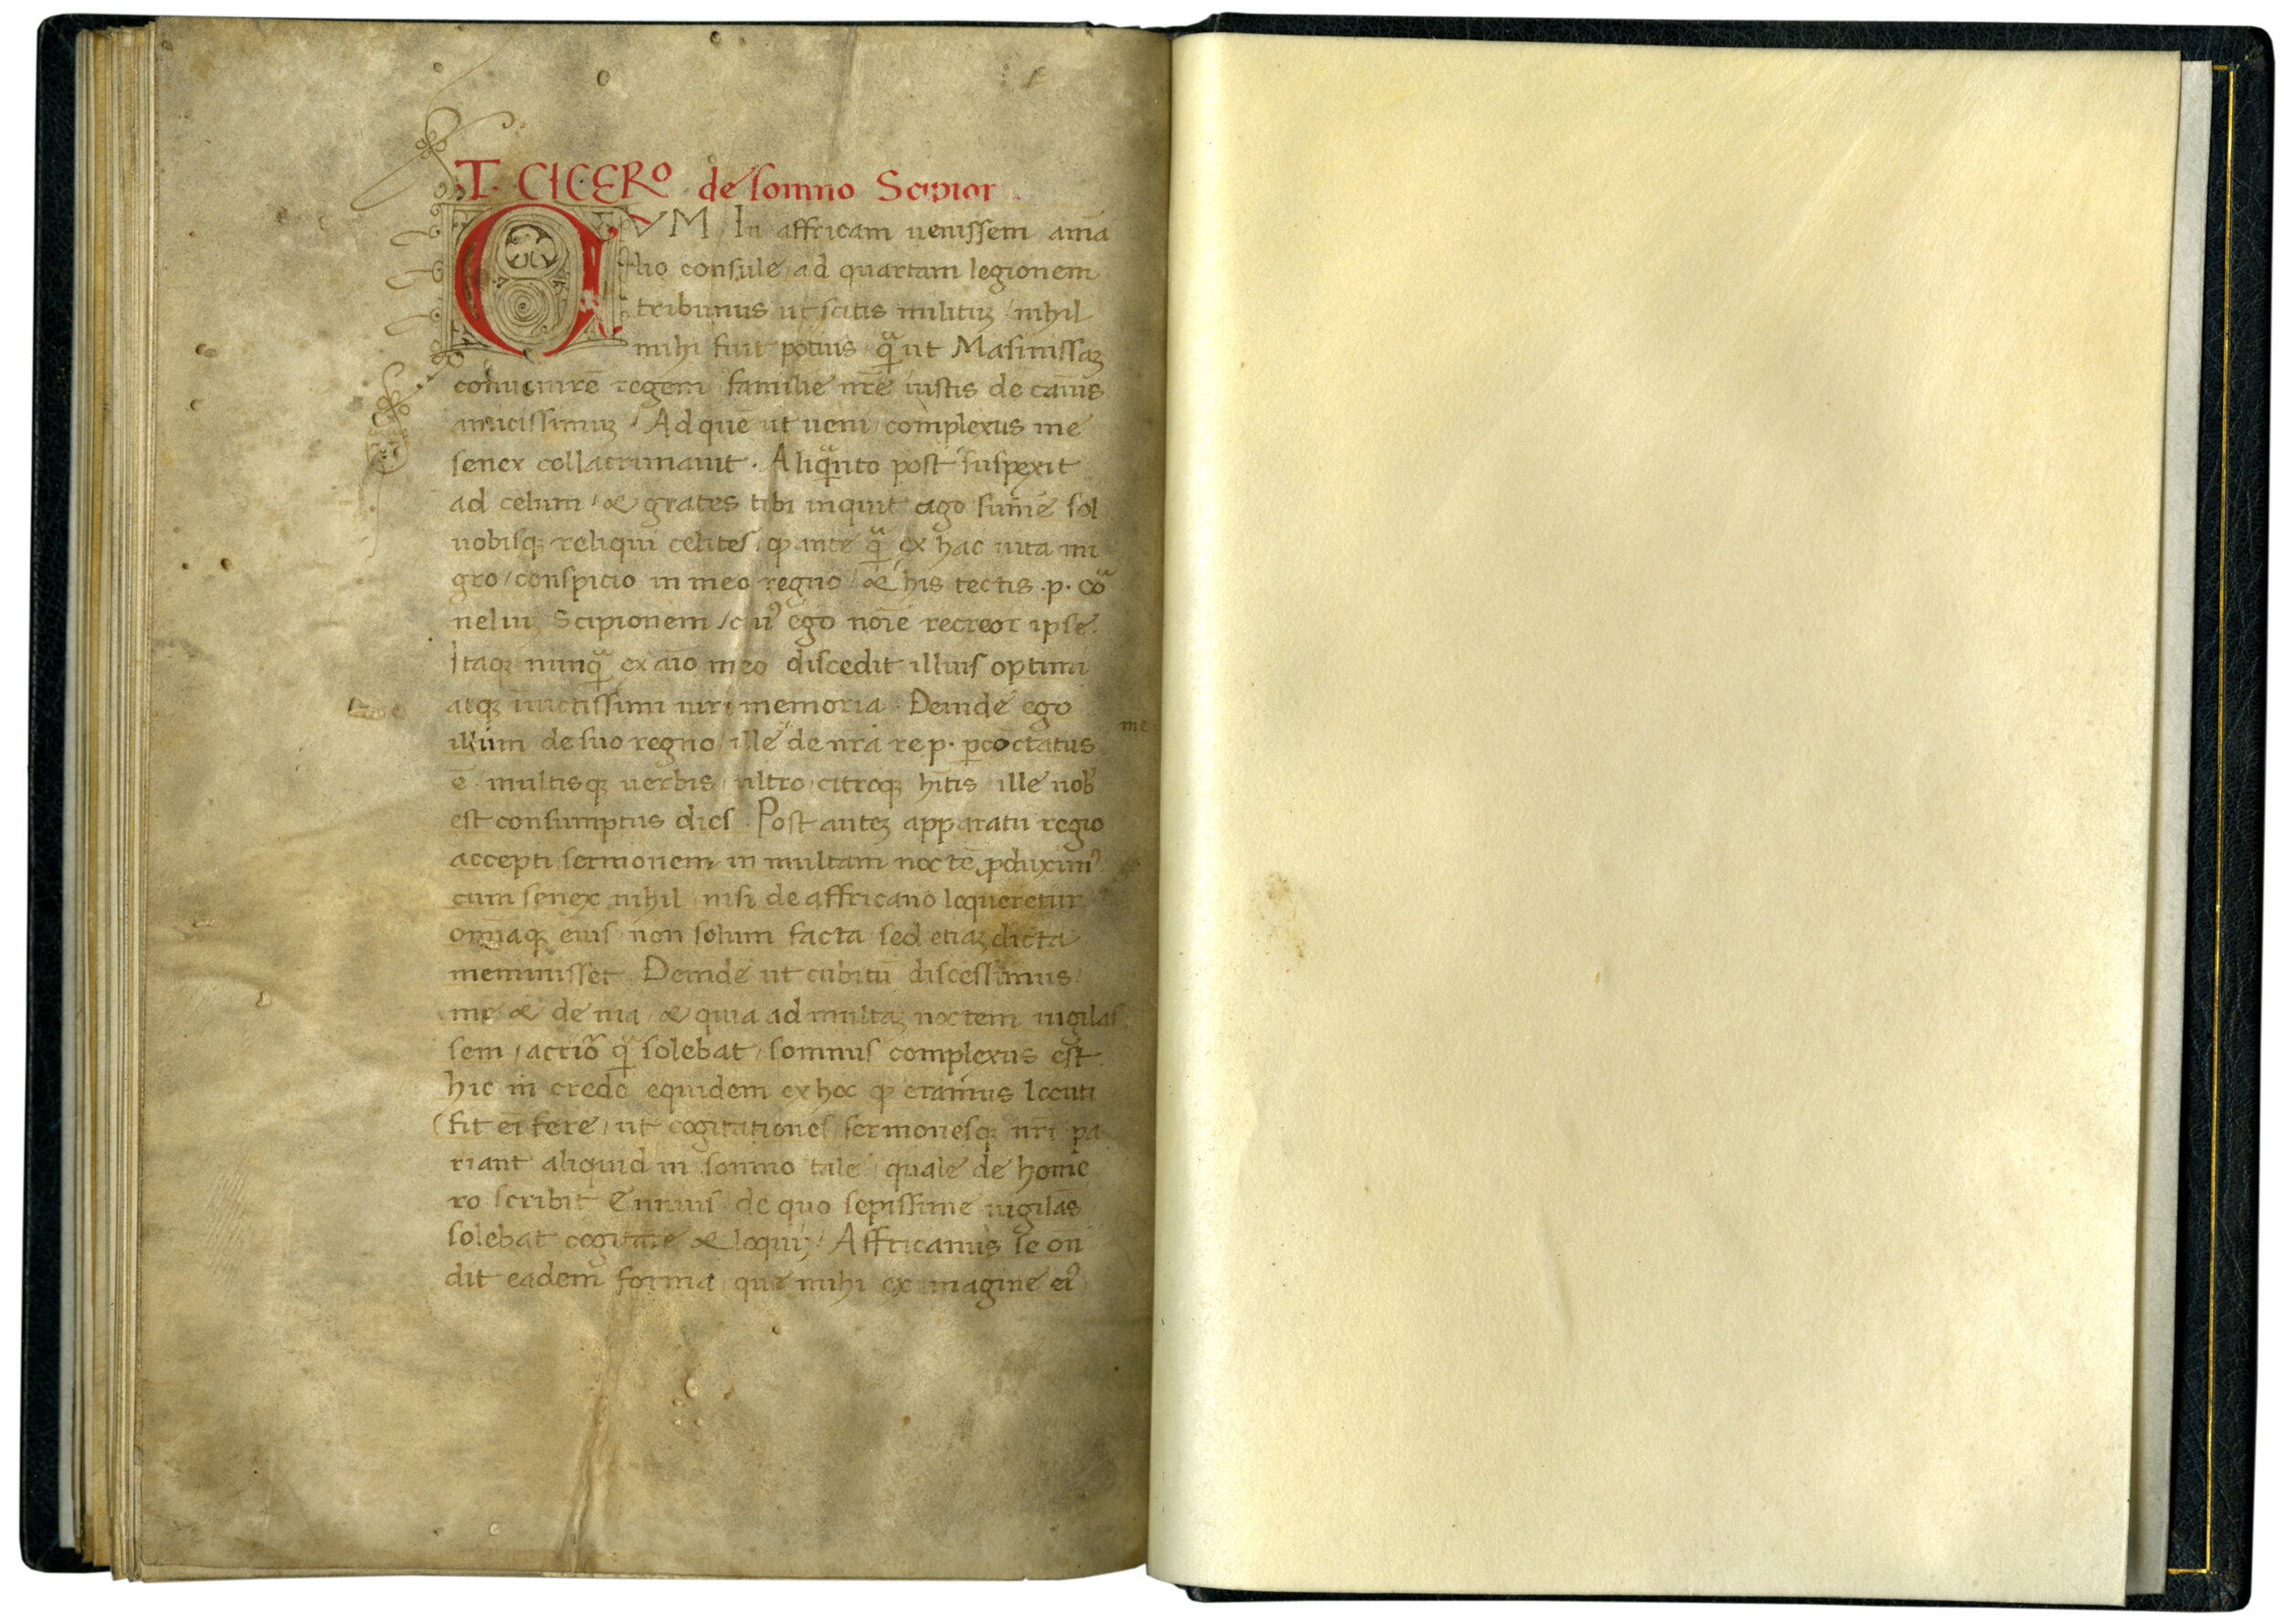 T. CICERO de somno Scipion
QVM In affricam uenissem amā
lio consule ad quartam legionem
tribunus ut scitis militum nihil
mihi fuit potius qͣ ut Masinissaꝫ
conuenirē regem familie nrē iustis de cauīs
amicissimuꝫ / Ad quē ut ueni complexus me
senex collacrimauit . Aliqͣnto post suspexit
ad celum / & grates tibi inquit ago sumē sol
uobisqꝫ reliqui celites / ꝙ ante qͣ ex hac uita mi
gro / conspicio in meo regno / & his tectis .p. cor
neliuꝫ Scipionem / cuiꝰ ego noīe recreor ipse.
Itaqꝫ nunqͣ ex aīo meo discedit illius optimi
atqꝫ inuictissimi uiri memoria . Deinde ego
illum de suo regno / ille de nrā re p. ꝑcoctatus
me
ē multisqꝫ uerbis / ultro citroqꝫ hītis / ille nob̄
est consumptus dies . Post auteꝫ apparatu regio
accepti sermonem in multam noctē ꝓduximꝰ
cum senex nihil nisi de affricano loqueretur
omīaqꝫ eius non solum facta sed etiaꝫ dicta
meminisset . Deinde ut cubitū discessimus /
me & de uia / & quia ad multaꝫ noctem uigilas
sem / actiō qͣ solebat / somnus complexus est
hic m̄ credo equidem ex hoc ꝙ eramus locuti
(fit eī fere / ut cogitationes sermonesqꝫ nrī pa
riant aliquid in somno tale / quale de home
ro scribit Ennius de quo sepissime uigilās
solebat cogitare & loqui) / Affricanus se on̄
dit eadem forma / que mihi ex imagine eiꝰ